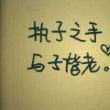 执子之手
与子偕老。